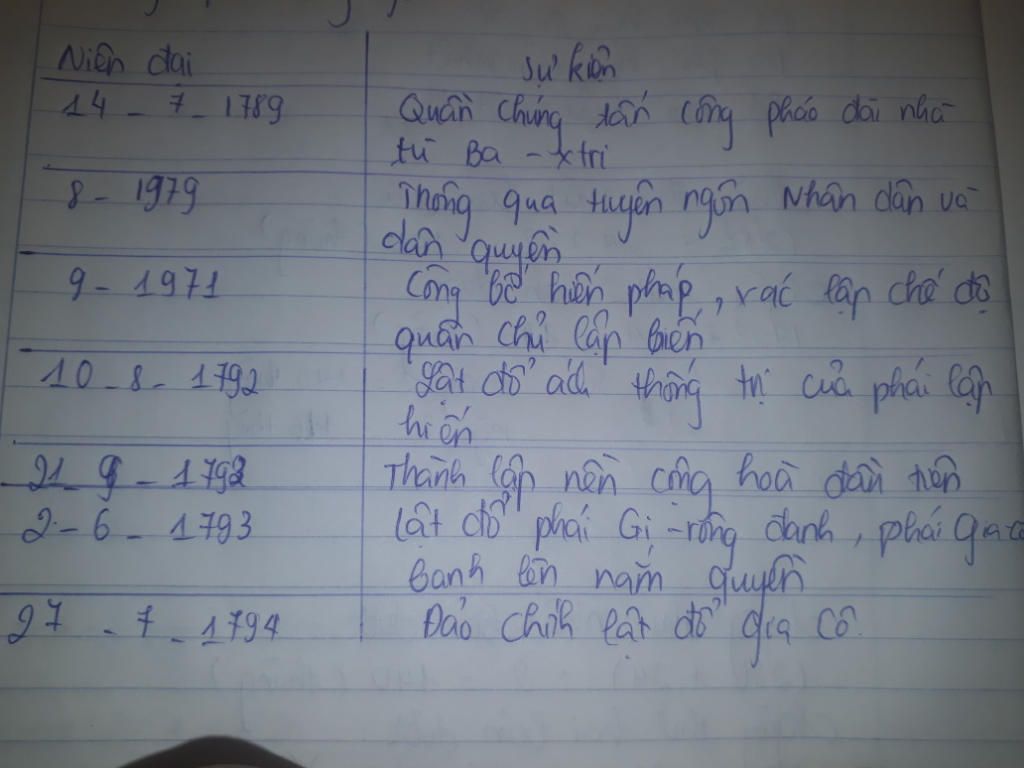 Niên đại
sự kiên
14 - 7 - 1789
Quần chúng tấn công pháo đài nhà
tù Ba - xtri
8 - 1979
Thông qua tuyên ngôn Nhân dân và
dân quyền
9 - 1971
Công bố hiến pháp, xác lập chế độ
quân chủ lập hiến
10 - 8 - 1792
Lật đổ ách thống trị của phái lập
hiến
21 - 9 - 1792
Thành lập nền cộng hoà đầu tiên
2 - 6 - 1793
Lật đổ phái Gi - rông đanh, phái Gia cô
banh lên nắm quyền
27 - 7 - 1794
Đảo chính lật đổ gia cô